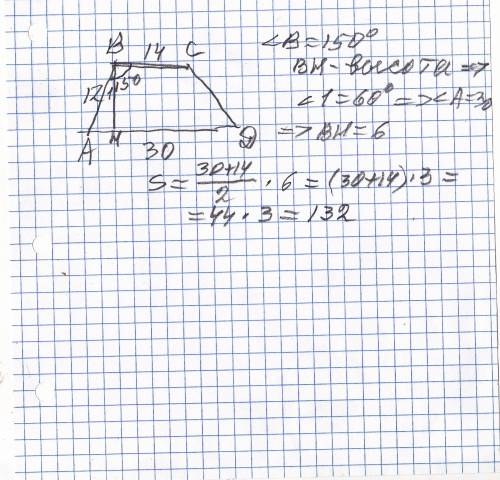 B 14 C
12 1 150
A H 30 D
∠B = 150°
BH - высота =>
∠1 = 60° => ∠A = 30
=> BH = 6
S = (30+14)/2 · 6 = (30+14) · 3 =
= 44 · 3 = 132